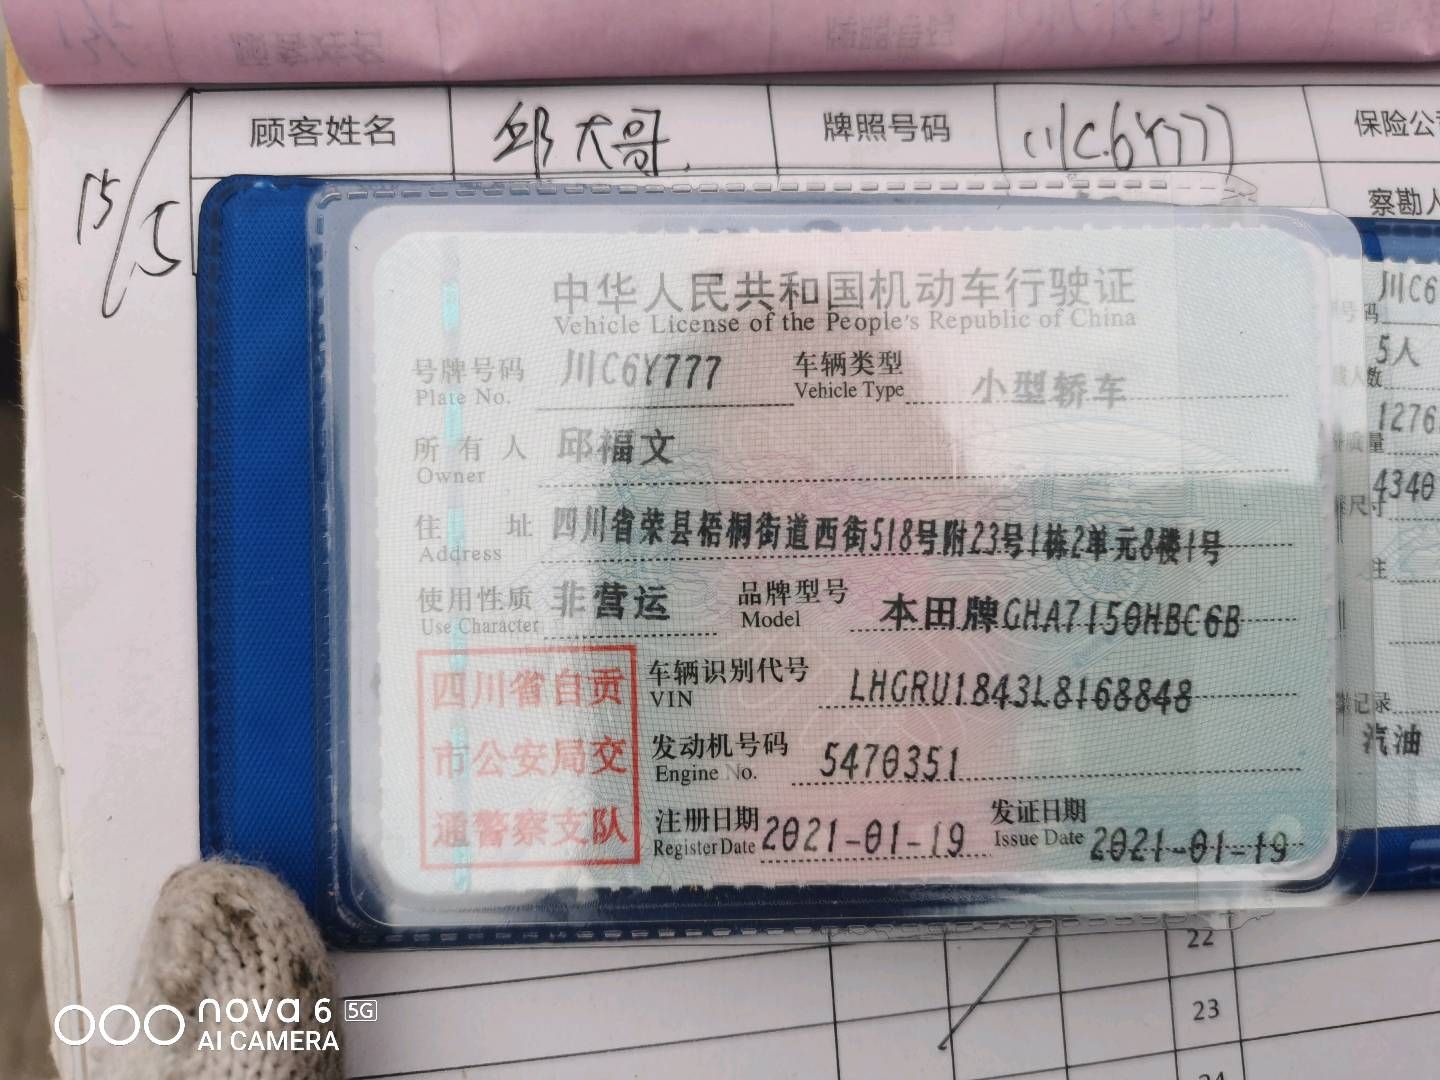 顾客姓名 邱大哥 牌照号码 川C.6Y777 保险公
15/5
察勘人
中华人民共和国机动车行驶证
Vehicle License of the People's Republic of China
号牌号码 川C6Y777 车辆类型 小型轿车
Plate No. Vehicle Type
所有人 邱福文
Owner
住址 四川省荣县梧桐街道西街518号附23号1栋2单元8楼1号
Address
使用性质 非营运 品牌型号 本田牌GHA7150HBC6B
Use Character Model
四川省自贡
市公安局交
通警察支队
车辆识别代号 LHGRU1843L8168848
VIN
发动机号码 5470351
Engine No.
注册日期 2021-01-19 发证日期 2021-01-19
Register Date Issue Date
号码 川C6
人数 5人
质量 1276
尺寸 4340
注
记录
汽油
22
23
24
nova 6 5G
AI CAMERA